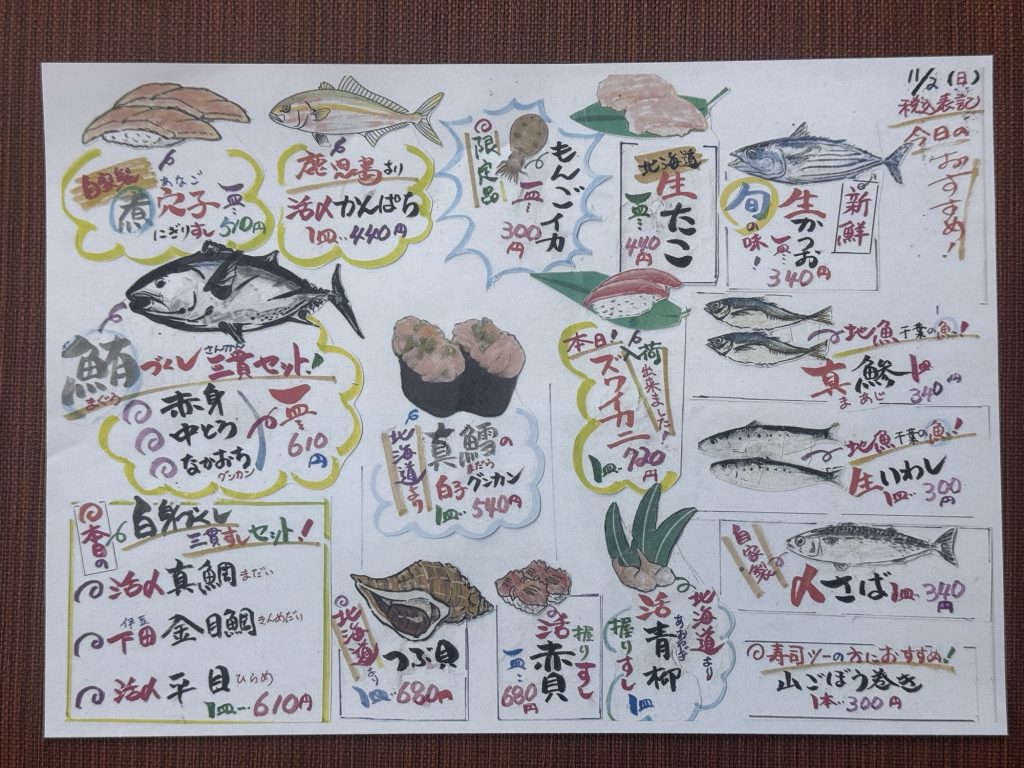 11/2(日)
税込表記
今日の
おすすめ!
自家製
煮穴子
あなご
にぎりすし
一皿…510円
鹿児島より
活〆かんぱち
1皿…440円
限定品
もんごイカ
一皿…300円
北海道
生たこ
一皿…440円
旬の味!
生かつお
一皿…340円
新鮮
鮪づくし三貫セット!
まぐろ
さんかん
赤身
中とろ
なかおち
グンカン
一皿…610円
北海道より
真鱈の
まだら
白子グンカン
1皿…540円
本日!
入荷出来ました!
ズワイカニ
1皿…720円
地魚千葉の魚!
真鯵
まあじ
1皿340円
地魚千葉の魚!
生いわし
1皿…300円
自家製
〆さば1皿…340円
本日の
白身づくし
三貫すしセット!
活〆真鯛まだい
伊豆
下田金目鯛きんめだい
活〆平目ひらめ
1皿…610円
北海道より
つぶ貝
1皿…680円
活赤貝
握りすし
一皿…680円
北海道より
活青柳
あおやぎ
握りすし
1皿
寿司ツーの方におすすめ!
山ごぼう巻き
1本…300円